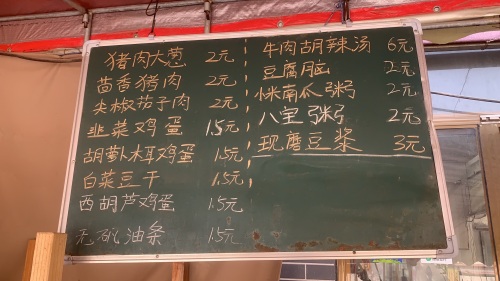 猪肉大葱 2元
茴香猪肉 2元
尖椒茄子肉 2元
韭菜鸡蛋 1.5元
胡萝卜木耳鸡蛋 1.5元
白菜豆干 1.5元
西胡芦鸡蛋 1.5元
无矾油条 1.5元
牛肉胡辣汤 6元
豆腐脑 2元
小米南瓜粥 2元
八宝粥 2元
现磨豆浆 3元